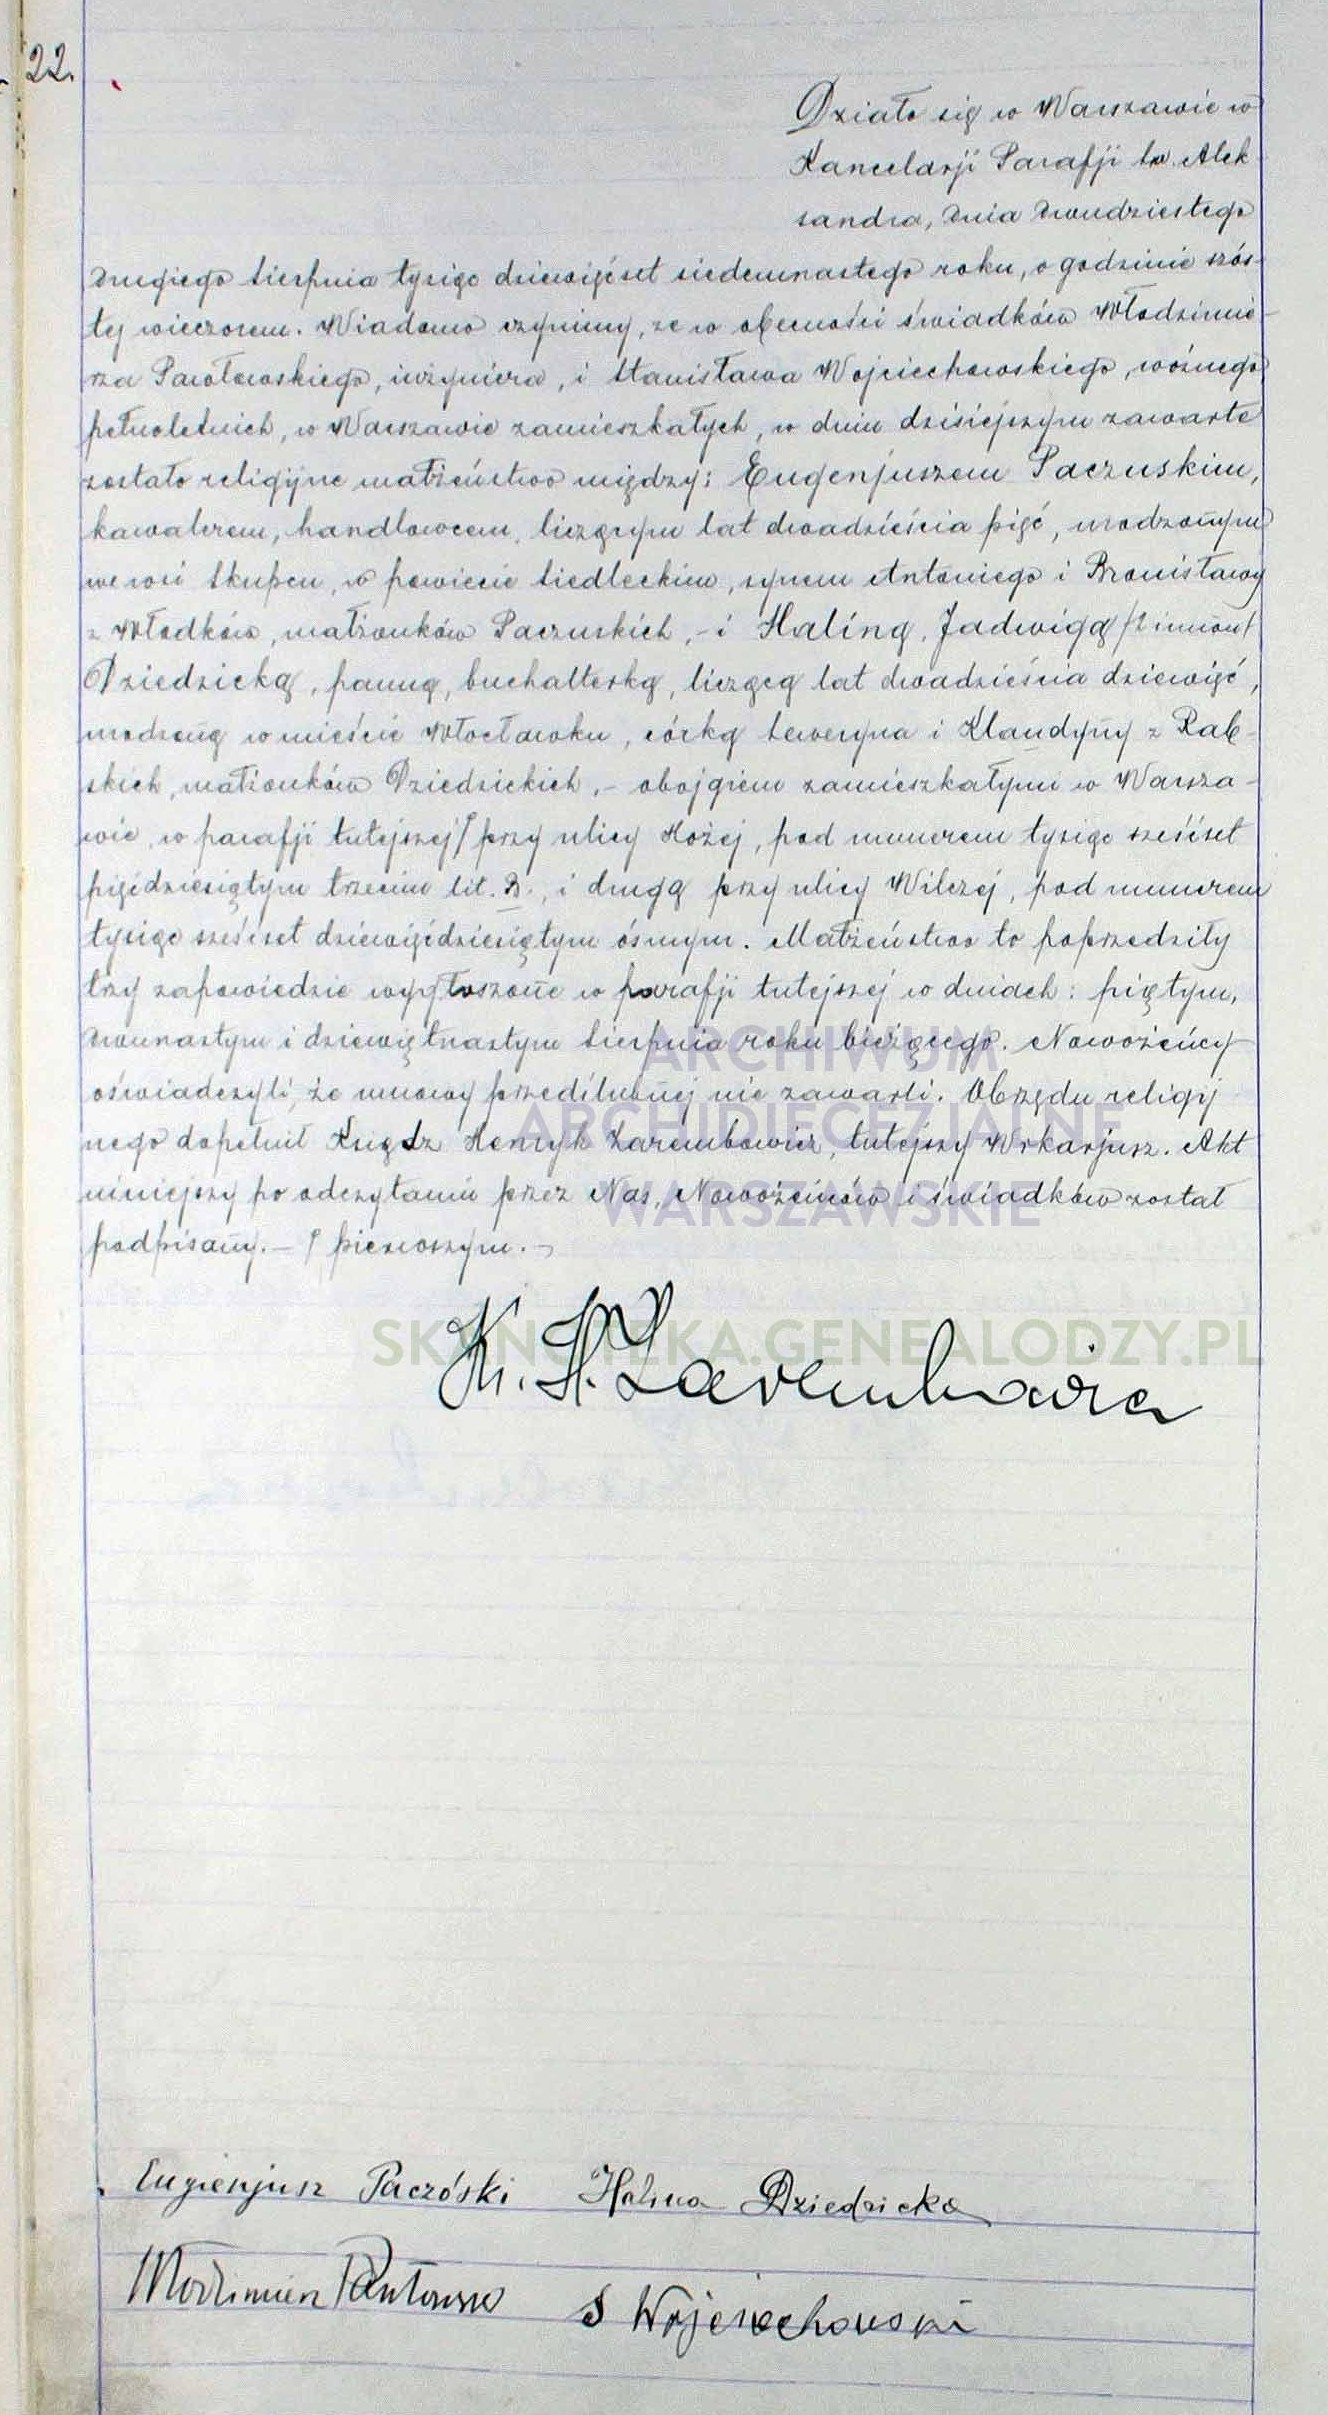 22.
Działo się w Warszawie w
Kancelarji Parafji św. Alek-
sandra, dnia dwudziestego
drugiego sierpnia tysiąc dziewięćset siedemnastego roku, o godzinie szós-
tej wieczorem. Wiadomo czynimy, że w obecności świadków Włodzimie-
rza Pawłowskiego, inżyniera, i Stanisława Wojciechowskiego, woźnego
pełnoletnich, w Warszawie zamieszkałych, w dniu dzisiejszym zawarte
zostało religijne małżeństwo między: Eugenjuszem Paczuskim,
kawalerem, handlowcem, liczącym lat dwadzieścia pięć, urodzonym
we wsi Skupcu, w powiecie Siedleckim, synem Antoniego i Bronisławy
z Włodków, małżonków Paczuskich, - i Haliną, Jadwigą /2 imion/
Dziedzicką, panną, buchalterką, liczącą lat dwadzieścia dziewięć,
urodzoną w mieście Włocławku, córką Seweryna i Klaudyny z Rab-
skich, małżonków Dziedzickich, - obojgiem zamieszkałymi w Warsza-
wie, w parafji tutejszej przy ulicy Hożej, pod numerem tysiąc sześćset
pięćdziesiątym trzecim lit. B., i drugą przy ulicy Wilczej, pod numerem
tysiąc sześćset dziewięćdziesiątym ósmym. Małżeństwo to poprzedziły
trzy zapowiedzie wygłoszone w parafji tutejszej w dniach: piątym,
dwunastym i dziewiętnastym Sierpnia roku bieżącego. Nowożeńcy
oświadczyli, że umowy przedślubnej nie zawarli. Obrzędu religij-
nego dopełnił Ksiądz Henryk Zarembowicz, tutejszy Wikarjusz. Akt
niniejszy po odczytaniu przez Nas, Nowożeńców i świadków został
podpisany. - pierwszym. -
ARCHIWUM
ARCHIDIECEZJALNE
WARSZAWSKIE
SKANOTEKA.GENEALODZY.PL
Ks. H. Zarembowicz
Eugienjusz Paczóski Halina Dziedzicka
Włodzimierz
S Wojciechowski